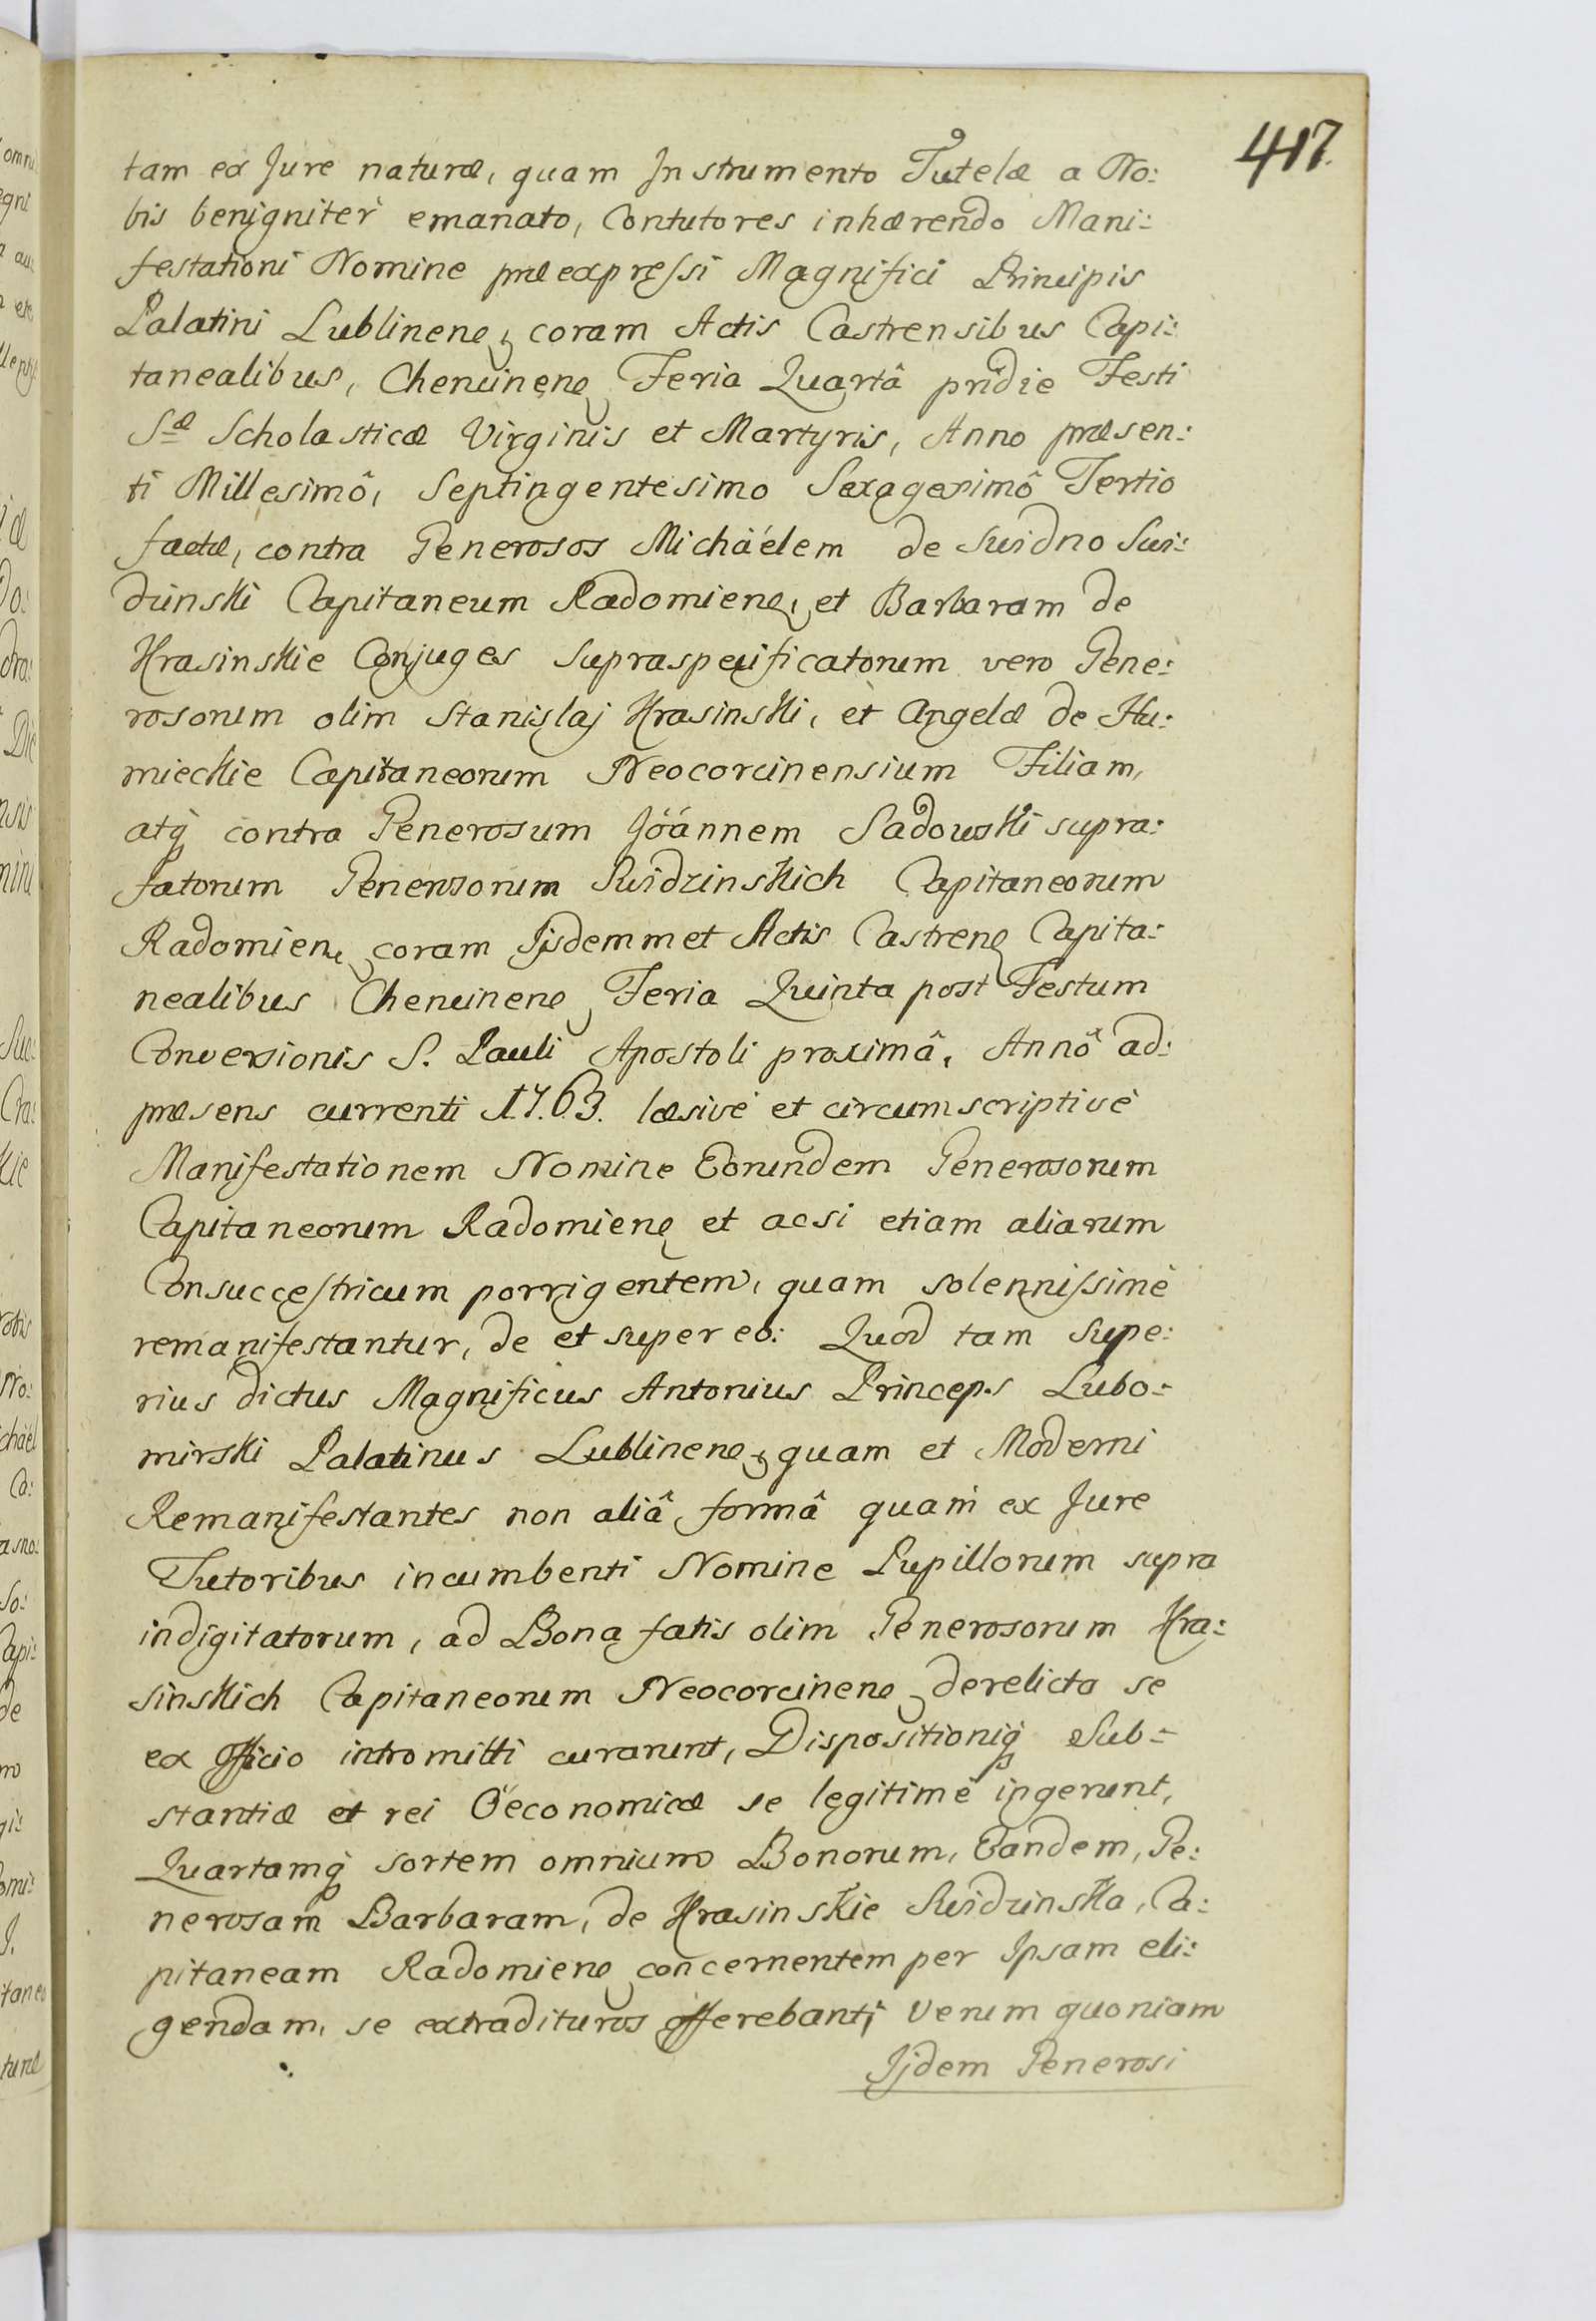 417.
tam ex Jure naturæ, quam Instrumento Tutelæ a No:
bis benigniter emanato, Contutores inhærendo Mani:
festationi Nomine præexpressi Magnifici Principis
Palatini Lublinenę, coram Actis Castrensibus Capi:
tanealibus, Chencinenę Feria Quartâ pridie Festi
Sæ Scholasticæ Virginis et Martyris, Anno præsen:
ti Millesimô, Septingentesimo Sexagesimô Tertio
factæ, contra Generosos Michäélem de Swidno Swi:
dzinski Capitaneum Radomienę, et Barbaram de
Krasinskie Conjuges Supraspecificatorum vero Gene:
rosorum olim Stanislaj Krasinski, et Angelæ de Hu:
mieckie Capitaneorum Neocorcinensium Filiam,
atq contra Generosum Jöánnem Sadowski supra:
fatorum Generosorum Swidzinskich Capitaneorum
Radomienę coram Ijsdemmet Actis Castrenę Capita:
nealibus Chencinenę Feria Quinta post Festum
Conversionis S. Pauli Apostoli proximâ, Annô ad:
præsens currenti 1763. læsivè et circumscriptivè
Manifestationem Nomine Eorundem Generosorum
Capitaneorum Radomienę et acsi etiam aliarum
Consuccestricum porrigentem, quam solennissimè
remanifestantur, de et super eo: Quod tam Supe:
rius dictus Magnificus Antonius Princeps Lubo:
mirski Palatinus Lublinenę, quam et Moderni
Remanifestantes non aliâ formâ quam ex Jure
Tutoribus incumbenti Nomine Pupillorum supra
indigitatorum, ad Bona fatis olim Generosorum Kra:
sinskich Capitaneorum Neocorcinenę derelicta se
ex Officio intromitti curarunt, Dispositioniq Sub:
stantiæ et rei Oëconomicæ se legitimè ingerunt,
Quartamq sortem omnium Bonorum, Eandem, Ge:
nerosam Barbaram, de Krasinskie Swidzinska, Ca:
pitaneam Radomienę concernentem per Ipsam eli:
gendam, se extradituros offerebant; Verum quoniam
Ijdem Generosi